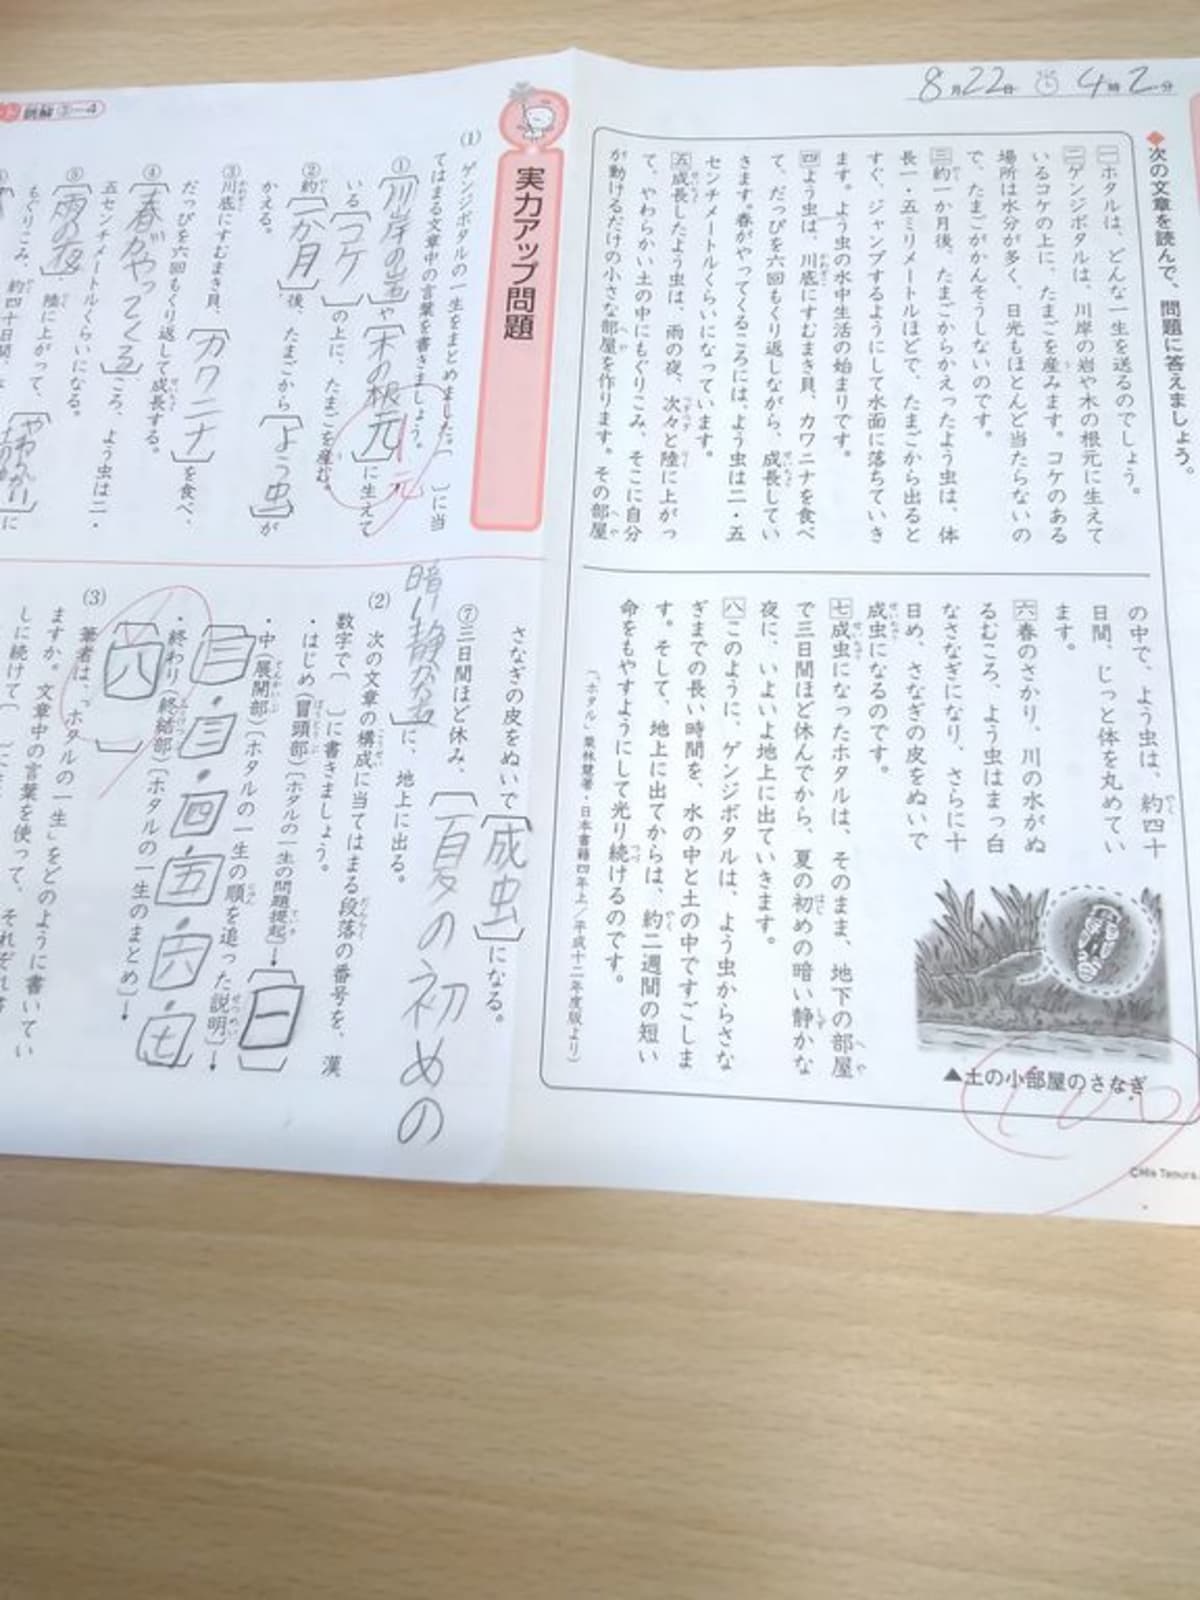 8月22日 4時2分
◆次の文章を読んで、問題に答えましょう。
一ホタルは、どんな一生を送るのでしょう。
二ゲンジボタルは、川岸の岩や木の根元に生えて
いるコケの上に、たまごを産みます。コケのある
場所は水分が多く、日光もほとんど当たらないの
で、たまごがかんそうしないのです。
三約一か月後、たまごからかえったよう虫は、体
長一・五ミリメートルほどで、たまごから出ると
すぐ、ジャンプするようにして水面に落ちていき
ます。よう虫の水中生活の始まりです。
四よう虫は、川底にすむまき貝、カワニナを食べ
て、だっぴを六回もくり返しながら、成長してい
きます。春がやってくるころには、よう虫は二・五
センチメートルくらいになっています。
五成長したよう虫は、雨の夜、次々と陸に上がっ
て、やわらかい土の中にもぐりこみ、そこに自分
が動けるだけの小さな部屋を作ります。その部屋
の中で、よう虫は、約四十
日間、じっと体を丸めてい
ます。
六春のさかり、川の水がぬ
るむころ、よう虫はまっ白
なさなぎになり、さらに十
日め、さなぎの皮をぬいで
成虫になるのです。
七成虫になったホタルは、そのまま、地下の部屋
で三日間ほど休んでから、夏の初めの暗い静かな
夜に、いよいよ地上に出ていきます。
八このように、ゲンジボタルは、よう虫からさな
ぎまでの長い時間を、水の中と土の中ですごしま
す。そして、地上に出てからは、約二週間の短い
命をもやすようにして光り続けるのです。
(「ホタル」栗林慧著・日本書籍四年上/平成十二年度版より)
▲土の小部屋のさなぎ
100
実力アップ問題
(1) ゲンジボタルの一生をまとめました。〔 〕に当
てはまる文章中の言葉を書きましょう。
①〔川岸の岩〕や〔木の根元〕に生えて
元
いる〔コケ〕の上に、たまごを産む。
②約〔一か月〕後、たまごから〔よう虫〕が
かえる。
③川底にすむまき貝、〔カワニナ〕を食べ、
だっぴを六回もくり返して成長する。
④〔春がやってくる〕ころ、よう虫は二・
五センチメートルくらいになる。
⑤〔雨の夜〕、陸に上がって、〔やわらかい
に
もぐりこみ、約四十日間、
さなぎの皮をぬいで〔成虫〕になる。
⑦三日間ほど休み、〔夏の初めの
暗い静かな夜〕に、地上に出る。
(2) 次の文章の構成に当てはまる段落の番号を、漢
数字で〔 〕に書きましょう。
・はじめ(冒頭部)〔ホタルの一生の問題提起〕→〔一〕
・中(展開部)〔ホタルの一生の順を追った説明〕→
〔二・三・四・五・六・七〕
・終わり(終結部)〔ホタルの一生のまとめ〕→
〔八〕
(3) 筆者は、「ホタルの一生」をどのように書いてい
ますか。文章中の言葉を使って、それぞれ書
しに続けて
読解②-4